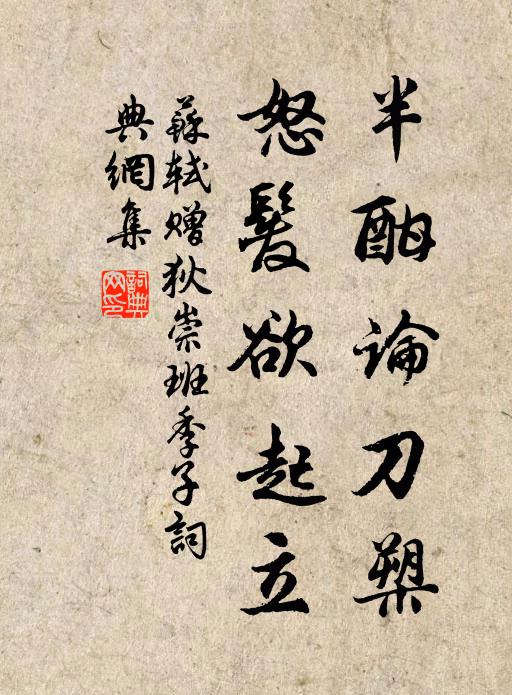 半酣論刀槊
怒髮欲起立
蘇軾贈狄崇班季子詞
典網集
詞典網印